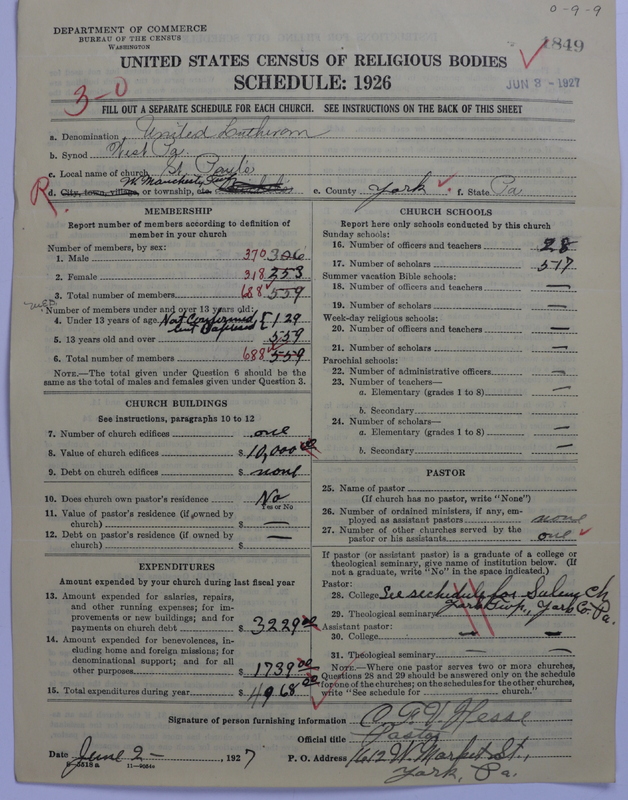 0-9-9
DEPARTMENT OF COMMERCE
BUREAU OF THE CENSUS
WASHINGTON
1849
UNITED STATES CENSUS OF RELIGIOUS BODIES
SCHEDULE: 1926
JUN 3 - 1927
3-0
FILL OUT A SEPARATE SCHEDULE FOR EACH CHURCH. SEE INSTRUCTIONS ON THE BACK OF THIS SHEET
a. Denomination United Lutheran
b. Synod West Pa.
c. Local name of church St. Paul's
R. d. City, town, village, or township, etc. W. Manchester Twp. e. County York f. State Pa
MEMBERSHIP
Report number of members according to definition of
member in your church
Number of members, by sex:
1. Male 370 306
2. Female 318 253
3. Total number of members 688 559
Number of members under and over 13 years old:
4. Under 13 years of age Not Confirmed but Baptised { 129
5. 13 years old and over 559
6. Total number of members 688 559
NOTE.—The total given under Question 6 should be the
same as the total of males and females given under Question 3.
CHURCH BUILDINGS
See instructions, paragraphs 10 to 12
7. Number of church edifices one
8. Value of church edifices $ 10,000 00
9. Debt on church edifices $ none
10. Does church own pastor's residence No
Yes or No
11. Value of pastor's residence (if owned by
church) $ —
12. Debt on pastor's residence (if owned by
church) $ —
EXPENDITURES
Amount expended by your church during last fiscal year
13. Amount expended for salaries, repairs,
and other running expenses; for im-
provements or new buildings; and for
payments on church debt $ 3229 00
14. Amount expended for benevolences, in-
cluding home and foreign missions; for
denominational support; and for all
other purposes $ 1739 00
15. Total expenditures during year $ 4968 00
CHURCH SCHOOLS
Report here only schools conducted by this church
Sunday schools:
16. Number of officers and teachers 28
17. Number of scholars 517
Summer vacation Bible schools:
18. Number of officers and teachers —
19. Number of scholars —
Week-day religious schools:
20. Number of officers and teachers —
21. Number of scholars —
Parochial schools:
22. Number of administrative officers —
23. Number of teachers—
a. Elementary (grades 1 to 8) —
b. Secondary
24. Number of scholars—
a. Elementary (grades 1 to 8) —
b. Secondary —
PASTOR
25. Name of pastor
(If church has no pastor, write "None")
26. Number of ordained ministers, if any, em-
ployed as assistant pastors none
27. Number of other churches served by the
pastor or his assistants one
If pastor (or assistant pastor) is a graduate of a college or
theological seminary, give name of institution below. (If
not a graduate, write "No" in the space indicated.)
Pastor:
28. College See schedule for Salem Ch
29. Theological seminary York Twp., York Co. Pa.
Assistant pastor:
30. College — —
31. Theological seminary — —
NOTE.—Where one pastor serves two or more churches,
Questions 28 and 29 should be answered only on the schedule
for one of the churches; on the schedules for the other churches,
write "See schedule for ........ church."
Signature of person furnishing information
Official title Pastor
Date June 2 —, 1927 P. O. Address 1612 W. Market St.,
York, Pa.